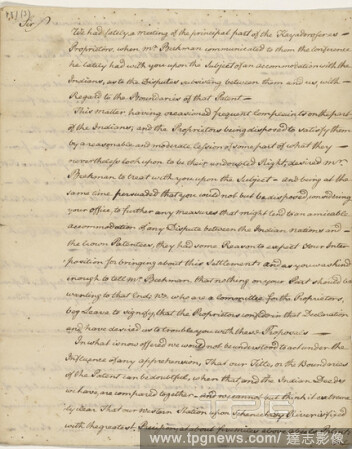 Sir
We had lately a Meeting of the principal part of the Kayaderosseras
Proprietors, when Mr. Beekman communicated to them the Conference
he lately had with you upon the Subject of an accommodation with the
Indians, as to the Disputes subsisting between them and us, with
Regard to the Boundaries of that Patent
This matter having occasioned frequent Complaints on the part
of the Indians, and the Proprietors being disposed to satisfy them
by a reasonable and moderate Cession of some part of what they
nevertheless look upon to be their undoubted Right, desired Mr.
Beekman to treat with you upon the Subject and being at the
same time persuaded that you could not but be disposed, considering
your office, to further any measures that might tend to an amicable
accommodation of any Dispute between the Indian Nations and
the Crown Patentees, they had some Reason to expect Your Inter
position for bringing about this Settlement: and as you was kind
enough to tell Mr. Beekman that nothing on your Part should be
wanting to that End; We who are a Committee for the Proprietors,
beg Leave to signify, that the Proprietors confide in that Declaration
and have desired us to trouble you with these Proposals
In what is now offered we would not be understood to act under the
Influence of any apprehension, That our Title, or the Boundaries
of the Patent can be doubtful, when that and the Indian Deeds
we have, are compared together and we cannot but think it extreme
ly clear That our Western Station upon Schenectady River is fixed
with the greatest Precision
www.tpgnews.com / 達志影像